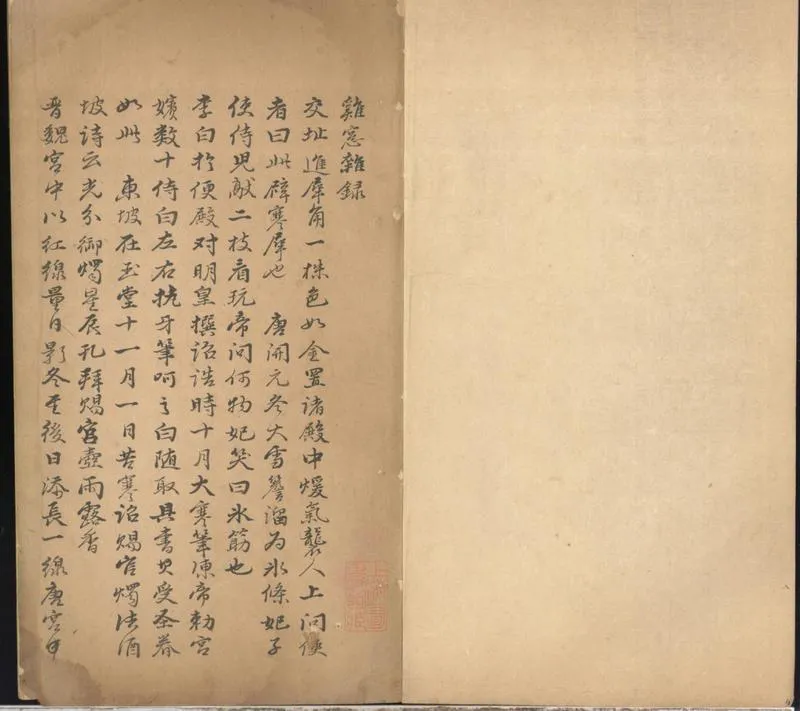 雞窓雜錄
交址進犀角一株色如金置諸殿中煖氣襲人上问使
者曰此辟寒犀也　唐開元冬大雪簷溜为氷條妃子
使侍児敲二枝看玩帝问何物妃笑曰氷筯也
李白於便殿对明皇撰詔誥時十月大寒筆凍帝勅宫
嬪数十侍白左右执牙筆呵之白随取具書其受圣眷
如此　東坡在玉堂十一月一日苦寒詔賜官燭法酒
坡诗云光分御燭星辰孔拜賜宮壺雨露香
晋魏宮中以红線量日影冬至後日添長一線唐宫中